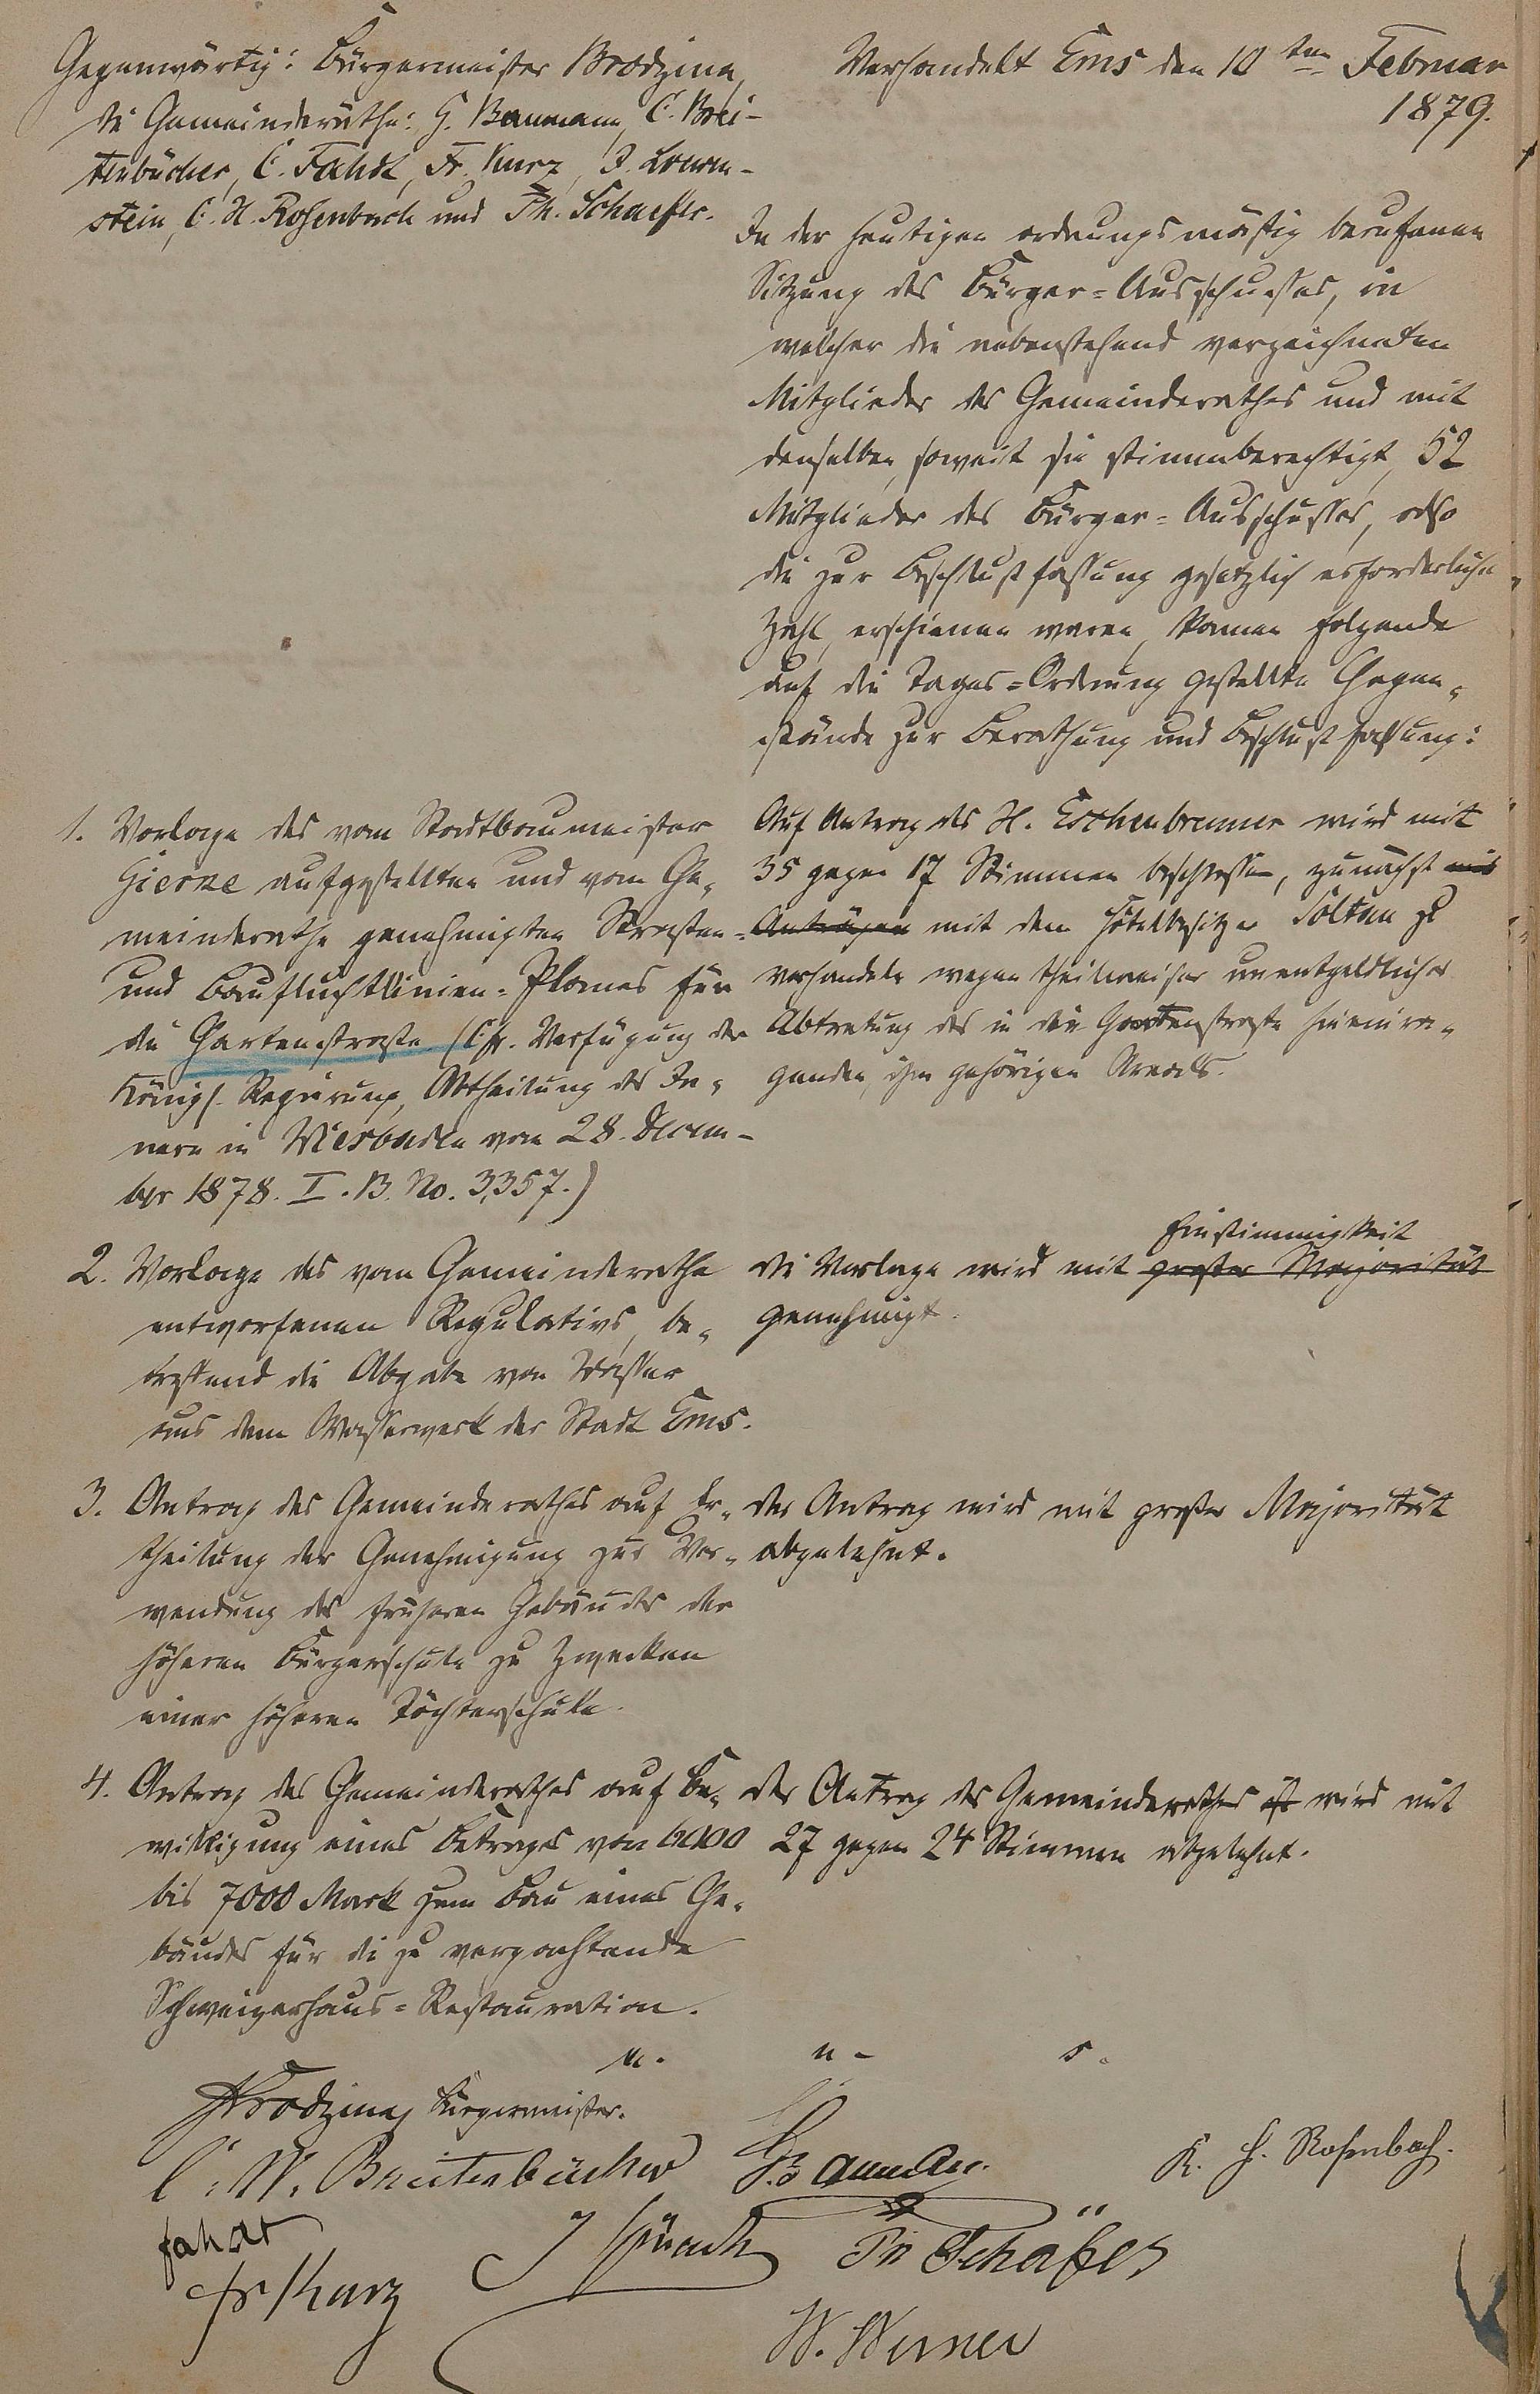 Gegenwärtig: Bürgermeister Brodzina,
die Gemeinderäthe: G. Baumann, C. Brei-
tenbücher, C. Fahdt, Fr. Kurz, J. Löwen-
stein, C. H. Rosenbach und Ph. Schaefer.
Verhandelt Ems den 10ten Februar
1879.
In der heutigen ordnungsmäßig berufenen
Sitzung des Bürger=Ausschusses, in
welcher die nebenstehend verzeichneten
Mitglieder des Gemeinderathes und mit
denselben, soweit sie stimmberechtigt, 52
Mitglieder des Bürger=Ausschusses, also
die zur Beschlußfassung gesetzlich erforderliche
Zahl, erschienen waren, kamen folgende
auf die Tages=Ordnung gestellte Gegen-
stände zur Berathung und Beschlußfassung:
1. Vorlage des vom Stadtbaumeister
Gierze aufgestellten und vom Ge-
meinderathe genehmigten Straßen=
und Baufluchtlinien=Planes für
die Gartenstraße (Cfr. Verfügung der
Königl. Regierung, Abtheilung des In-
nern in Wiesbaden vom 28. Decem-
ber 1878. I. B. No. 3,357.)
Auf Antrag des H. Eschenbrenner wird mit
35 gegen 17 Stimmen beschlossen, zunächst mit
Anträgen mit dem Hôtelbesitzer Soltau zu
verhandeln wegen theilweiser unentgeldlicher
Abtretung des in die Gartenstraße hineinra-
genden, ihm gehörigen Areals.
2. Vorlage des vom Gemeinderathe
entworfenen Regulativs, be-
treffend die Abgabe von Wasser
aus dem Wasserwerk der Stadt Ems.
Einstimmigkeit
Die Vorlage wird mit großer Majorität
genehmigt.
3. Antrag des Gemeinderathes auf Er-
theilung der Genehmigung zur Ver-
wendung des früheren Gebäudes der
höheren Bürgerschule zu Zwecken
einer höheren Töchterschule.
Der Antrag wird mit großer Majorität
abgelehnt.
4. Antrag des Gemeinderathes auf Be-
willigung eines Betrages von 6000
bis 7000 Mark zum Bau eines Ge-
bäudes für die zu verpachtende
Schweizerhaus=Restauration.
Der Antrag des Gemeinderathes ist wird mit
27 gegen 24 Stimmen abgelehnt.
u. u. s.
Brodzina, Bürgermeister.
C. W. Breitenbücher
Baumann.
K. H. Rosenbach.
Fahdt
Ph Schäfer
Fr Kurz
W. Werner